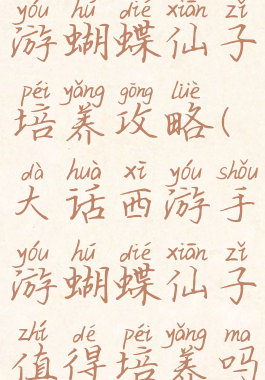 yóu hú dié xiān zǐ
游蝴蝶仙子
péi yǎng gōng lüè
培养攻略(
dà huà xī yóu shǒu
大话西游手
yóu hú dié xiān zǐ
游蝴蝶仙子
zhí dé péi yǎng ma
值得培养吗